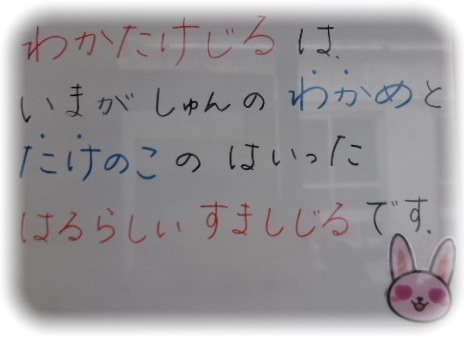 わかたけじるは、
いまがしゅんのわかめと
たけのこのはいった
はるらしいすましじるです。